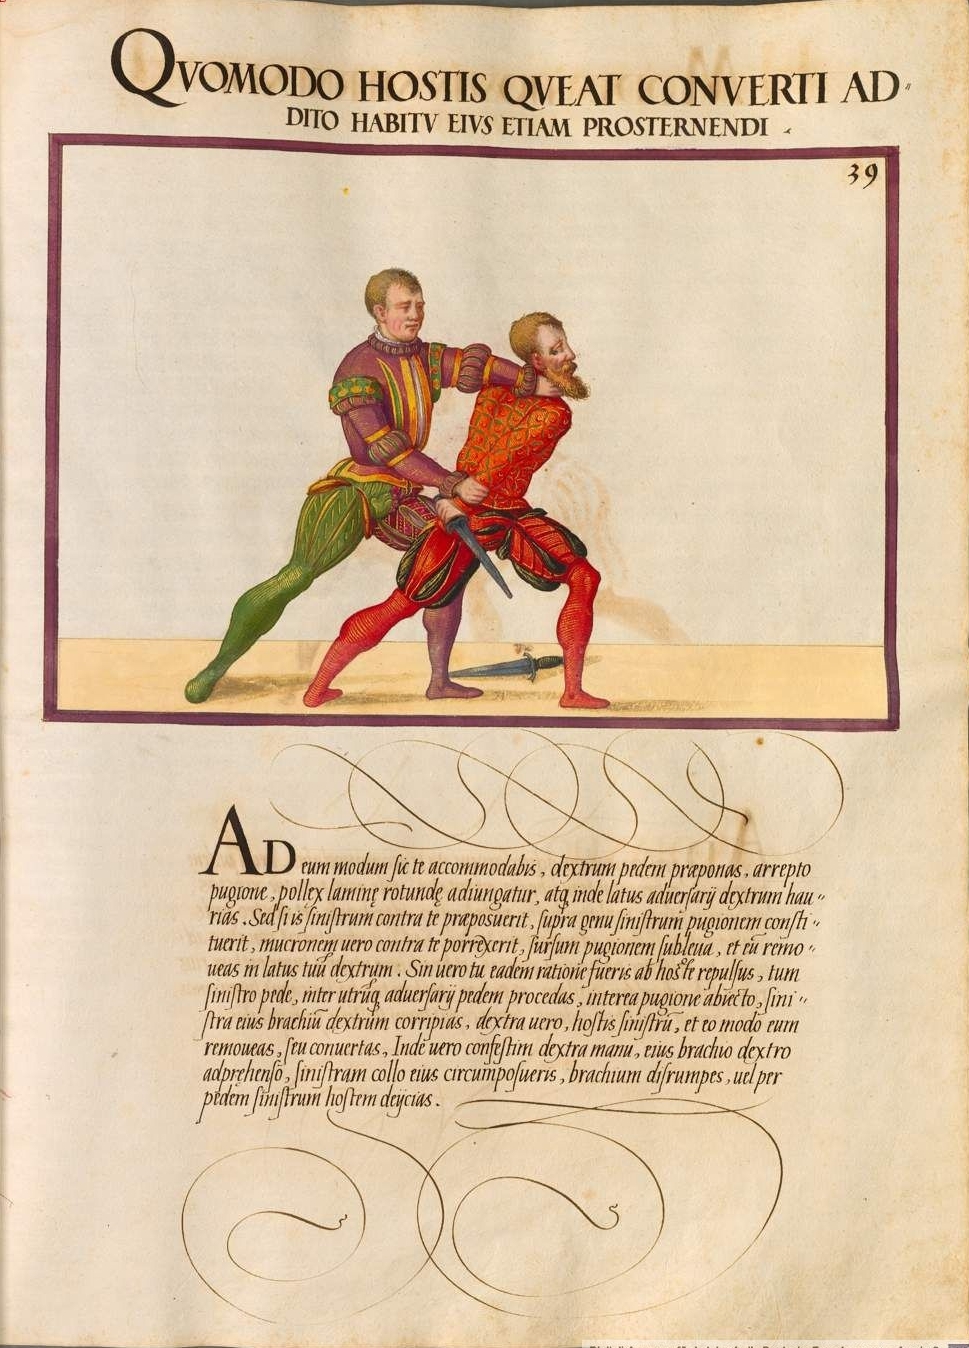 QVOMODO HOSTIS QVEAT CONVERTI AD〃
DITO HABITV EIVS ETIAM PROSTERNENDI .
39
AD eum modum sic te accommodabis, dextrum pedem præponas, arrepto
pugione, pollex laminę rotundę adiungatur, atq̨ inde latus aduersarij dextrum hau〃
rias. Sed si is sinistrum contra te præposuerit, supra genu sinistrum̄ pugionem consti〃
tuerit, mucronem uero contra te porrexerit, sursum pugionem subleua, et eū remo〃
ueas in latus tuū dextrum. Sin uero tu eadem ratione fueris ab hoste repulsus, tum
sinistro pede, inter utrūq̨ aduersarij pedem procedas, interea pugione abiecto, sini〃
stra eius brachiū dextrum corripias, dextra uero, hostis sinistrū, et eo modo eum
remoueas, seu conuertas, Inde uero confestim dextra manu, eius brachio dextro
adprehenso, sinistram collo eius circumposueris, brachium disrumpes, uel per
pedem sinistrum hostem deijcias.